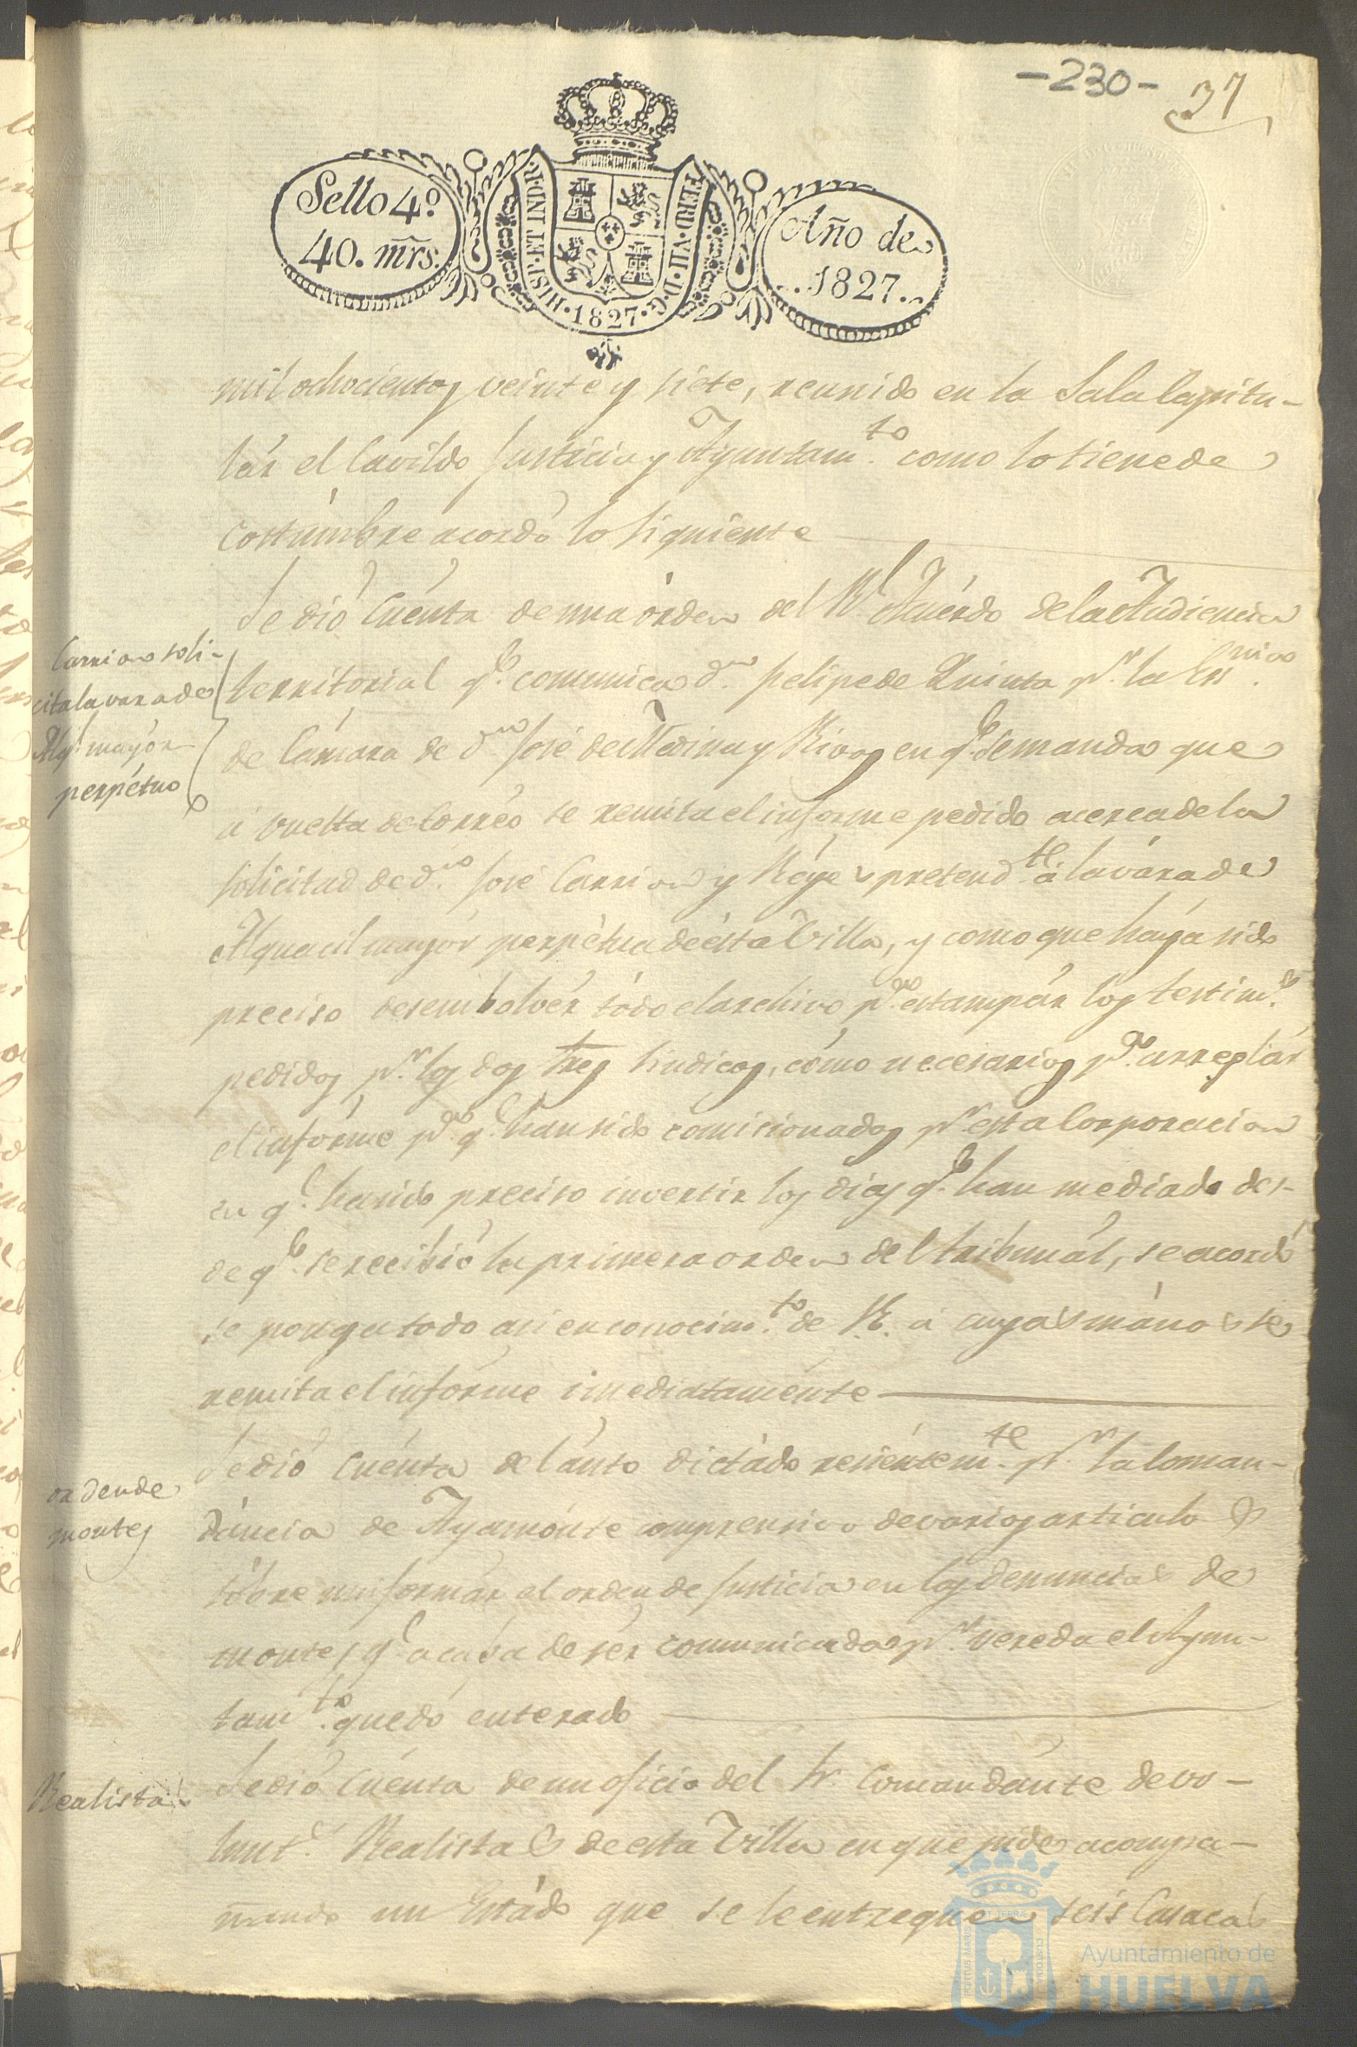 -230-
37
Sello 4º
40. mrs.
HISP. ET IND. R.
FERD. VII. D. G.
1827
Año de
1827
mil ochocientos veinte y siete, reunido en la Sala Capitu-
lar el Cavildo Justicia y Ayuntamto. como lo tiene de
costumbre acordó lo siguiente
Se dió cuenta de una órden del Rl. Acuérdo de la Audiencia
Carrion soli-
cita la vara de
Alg. mayór
perpétuo
territorial qe. comunica Dn. Felipe de Quinta pr. la Essnia.
de Cámara de Dn. José de Medina y Rivas en qe. se manda que
á vuelta de Corréo se remita el informe pedido acerca de la
solicitud de Dn. José Carrion y Réyes pretendte. á la vára de
Alguacil mayór perpétua de ésta Villa, y como que háya sido
preciso desembolvér tódo el archivo pa. estampár los testims.
pedidos pr. los dos Sres. Sindicos, cómo necesarios pa. arreglár
el informe pa. qe. han sido comicionados pr. esta Corporacion
en qe. ha sido preciso invertir los dias qe. han mediado des-
de qe. se recibió la primera orden del tribunál, se acordó
se ponga todo asi en conocimto. de V.E. á cuyas mános se
remita el informe imediatamente
Se dió cuénta del áuto dictádo resientemte. pr. la Coman-
orden de
montes
dáncia de Ayamónte comprensivo de varios articulos
sóbre uniformár el orden de Justicia en las denuncias de
montes qe. acába de sér comunicada pr. vereda el Ayun-
tamto. quedó enterado
Realistas
Se dió cuénta de un oficio del Sr. Comandánte de vo-
lunts. Realistas de esta Villa en que pide acompa-
ñando un Estádo que se le entreguen seis Casacas
Ayuntamiento de
HUELVA